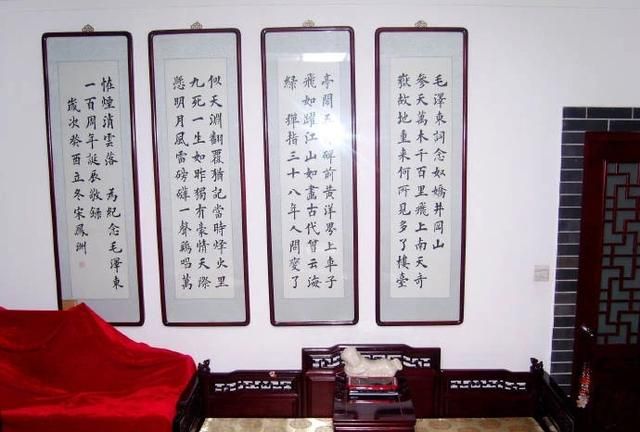 毛澤東詞念奴嬌井岡山
參天萬木千百里飛上南天奇
嶽故地重來何所見多了樓臺
亭閣五井碑前黃洋界上車子
飛如躍江山如畫古代曾云海
綠 彈指三十八年人間變了
似天淵翻覆猶記當時烽火里
九死一生如昨獨有豪情天際
懸明月風雷磅礴一聲鷄唱萬
恠煙消雲落 為紀念毛澤東
一百周年誕辰敬錄
歲次癸酉立冬宋鳳洲